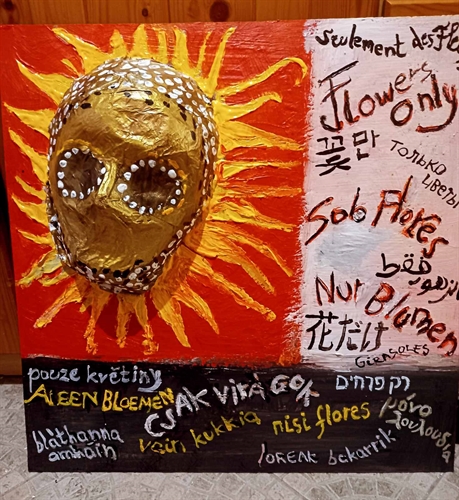 seulement des Fle
Flowers
only
꽃만
только
цветы
Solo Flores
فقط
Nur Blumen
花だけ
GIRASOLES
pouze květiny
ALEEN BLOEMEN
CSAK VIRÁGOK
רק פרחים
bláthanna
amháin
vain kukkia
nisi flores
μόνο
λουλούδια
loreak bekarrik